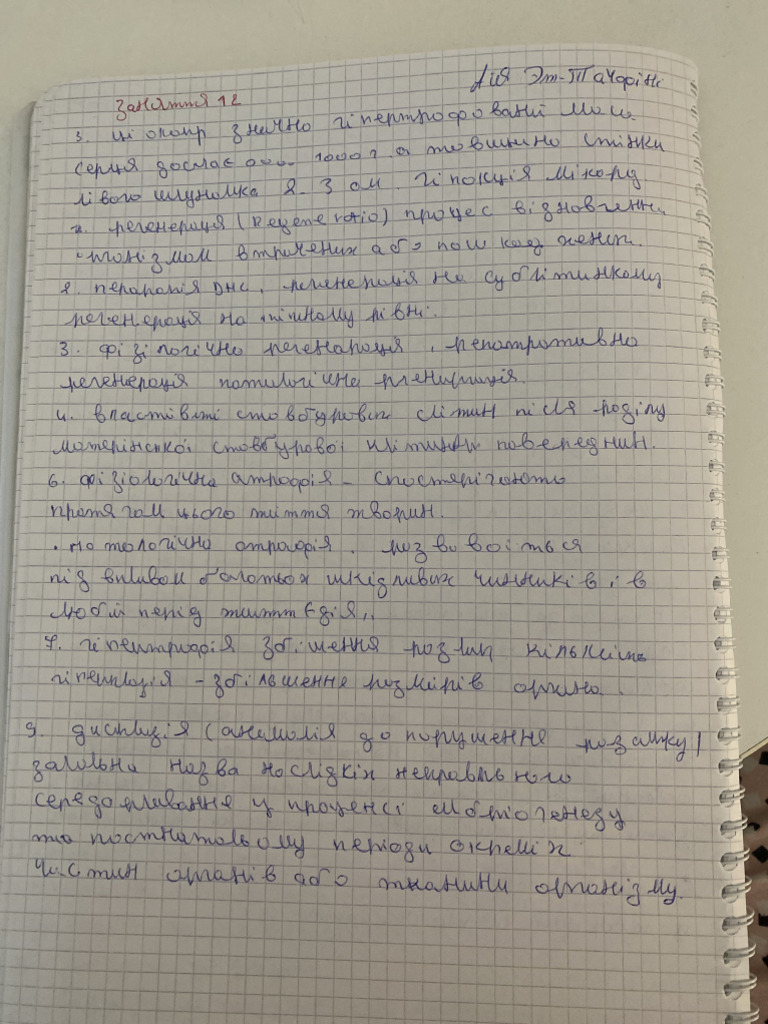 Ания Эт-Тачфіні
Заняття 12
3. ці окопр значно гіпертрофовані маса
серця досягає 1000 г. а товщино стінки
лівого шлуночка 2-3 см. гіпокція мікорд
регенерація (Regeneratio) процес відновленн.
організмом втрачених або пошкодженн.
2. перарапія ДНС, регенерація на субклітинкому
регенерація на клітиному рівні.
3. фізілогічно регенарація, репатротивно
регенерація патилогічна регенирація.
4. впастівоті стовбурових слітин після розділу
материнської стовбурової клітини повереднин.
6. фізіологічна атрофія - спостерігають
протягом цього життя творин.
. потологічно отрофія. розвиваїться
під впливом багатьох шкідливих чинників і в
любій періd життєдія,,
7. гіпентрифія збішення розмір кількість
гіпеплазія - збільшення розмірів органа.
9. дисплазія (анамолія до порушення розвитку)
загольна назва нослідкіх неправльного
середоривання у проценсі ембріогенезу
та постнатольому періоди окреміх
частин органів або тканини організму.